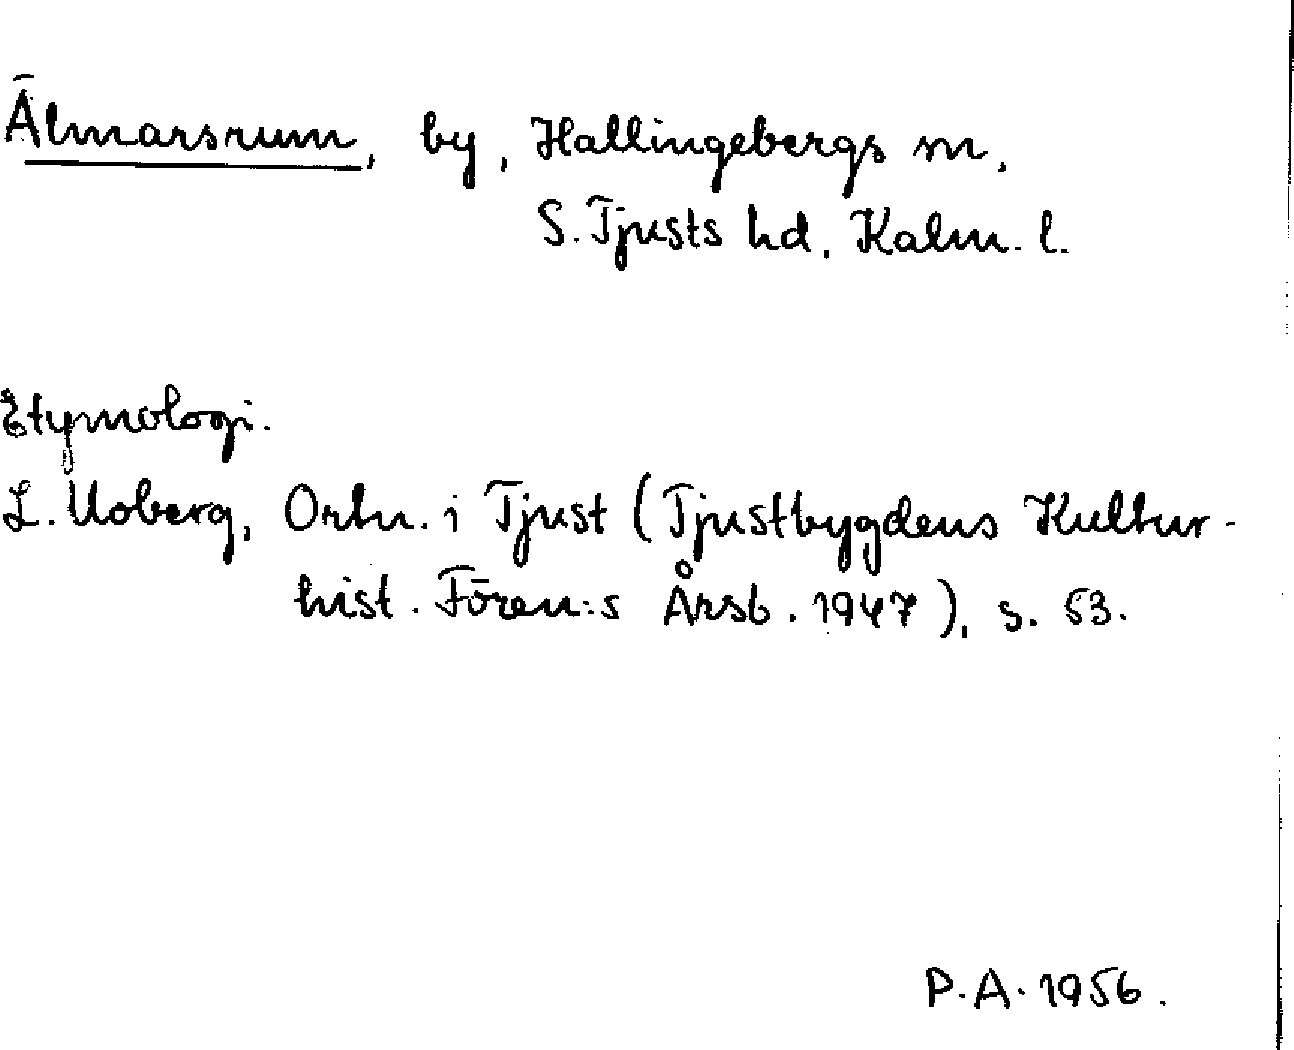 Älmarsrum, by, Hallingebergs sn,
S. Tjusts hd, Kalm. l.
Etymologi.
L. Moberg, Ortn. i Tjust (Tjustbygdens Kultur-
hist. Fören:s Årsb. 1947), s. 53.
P.A. 1956.